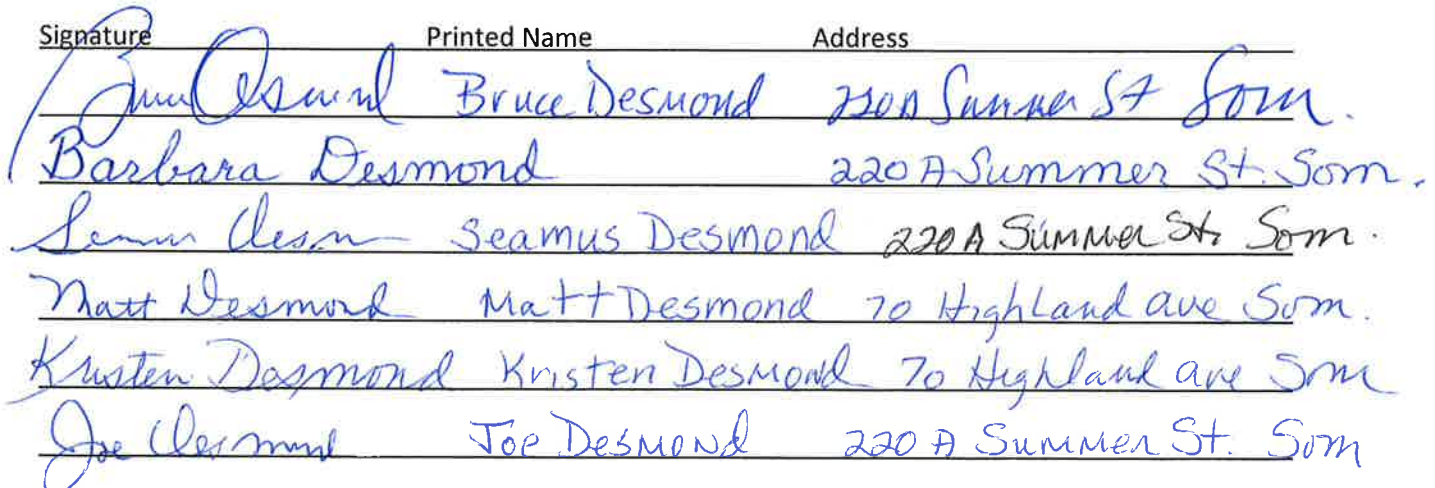 Signature Printed Name Address
Bruce Desmond Bruce Desmond 220A Summer St Som.
Barbara Desmond 220 A Summer St. Som.
Seamus Desmond Seamus Desmond 220 A Summer St. Som.
Matt Desmond Matt Desmond 70 Highland ave Som.
Kristen Desmond Kristen Desmond 70 Highland ave Som
Joe Desmond Joe Desmond 220 A Summer St. Som